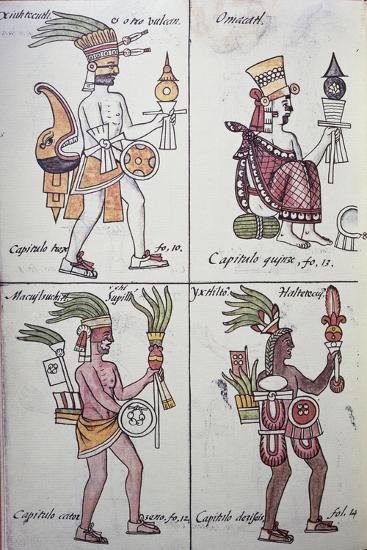 Xiuhtecutli. es otro vulcan.
Capitulo treze fo, 10.
Omacatl.
Capitulo quinze, fo, 13.
Macuilsuchitl Suchipilli
Capitulo cator zeno, fo, 12.
Yxtlilto
Capitulo fol. 14